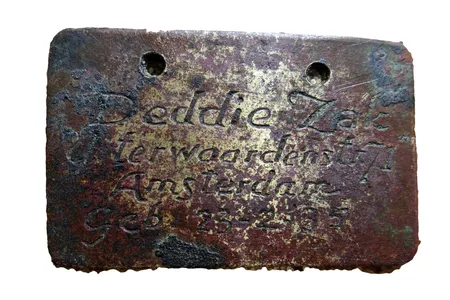 Deddie Zak
Uiterwaardenstr 71
Amsterdam
Geb. 23-2-35